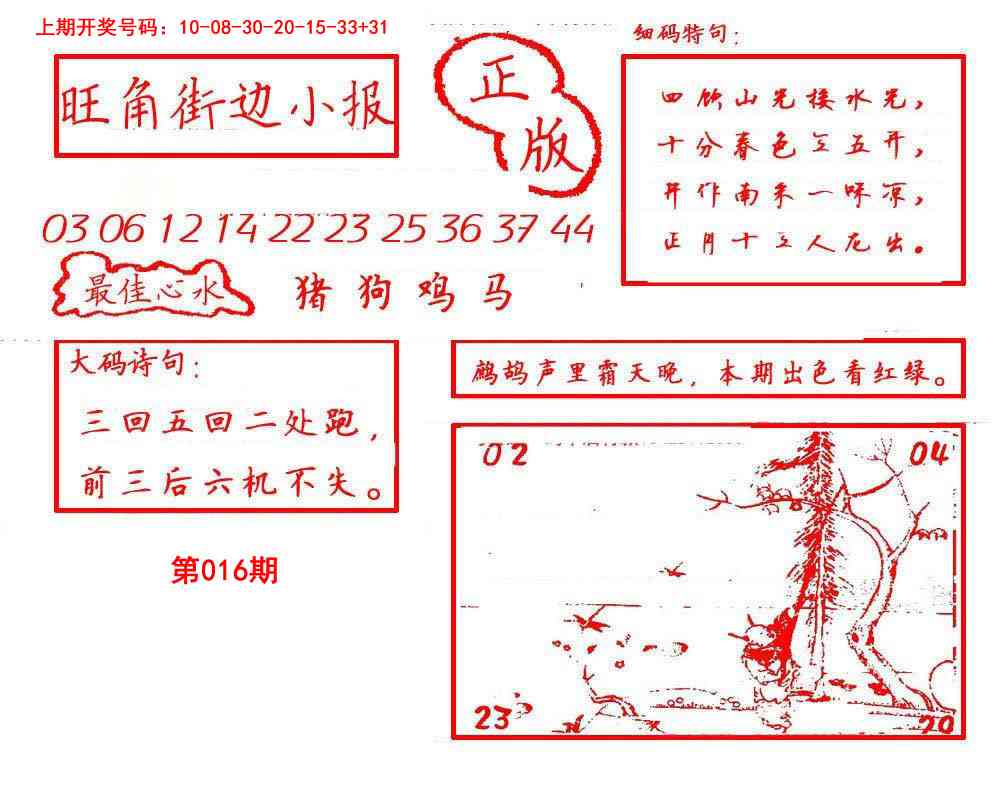 上期开奖号码：10-08-30-20-15-33+31
旺角街边小报
正版
细码特句：
四顾山光接水光，
十分春色立五开，
开作南来一味凉，
正月十五人尼出。
03 06 12 14 22 23 25 36 37 44
最佳心水
猪狗鸡马
大码诗句：
三回五回二处跑，
前三后六机不失。
第016期
鹧鸪声里霜天晚，本期出色看红绿。
02
04
23
20